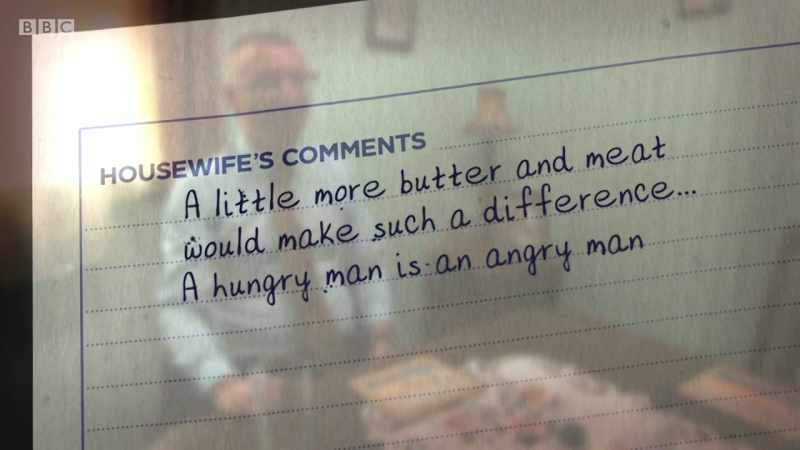 BBC
HOUSEWIFE'S COMMENTS
A little more butter and meat
would make such a difference...
A hungry man is an angry man